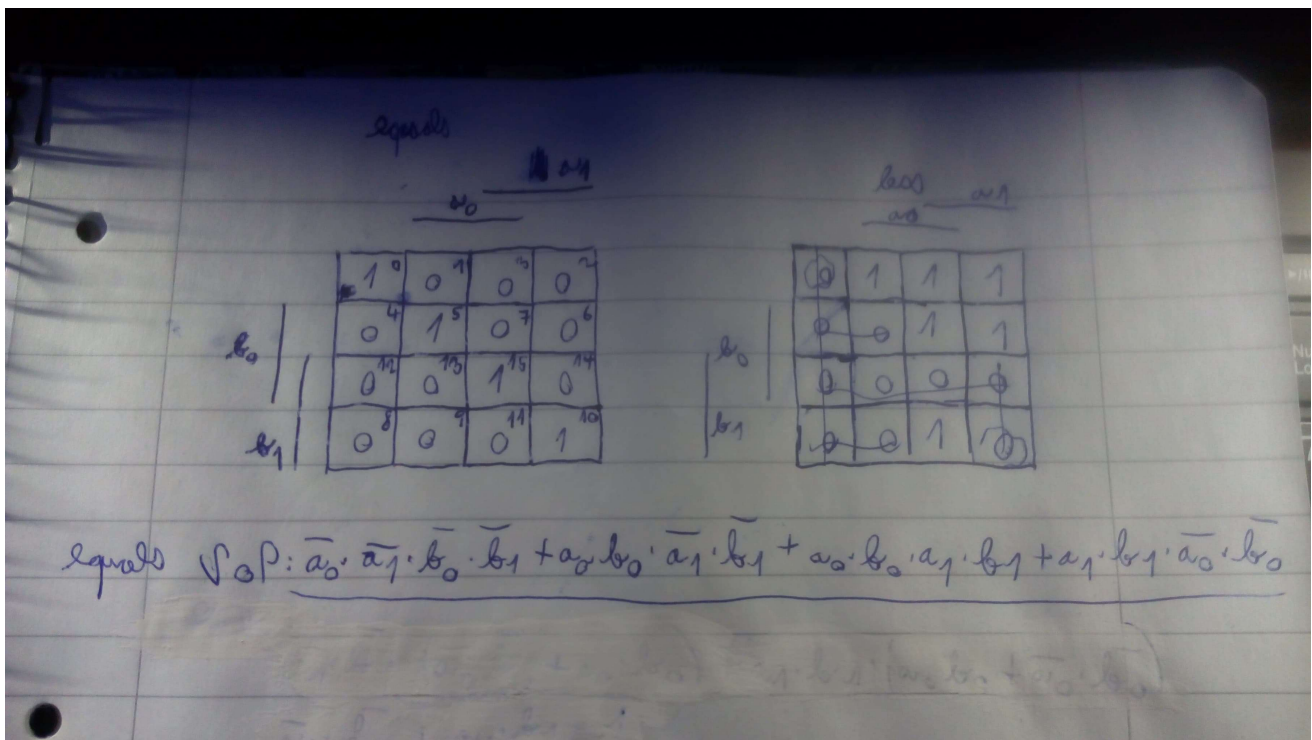 equals
a1
a0
1 0 0 1 0 3 0 2
0 4 1 5 0 7 0 6
b0
0 12 0 13 1 15 0 14
0 8 0 9 0 11 1 10
b1
less
a1
a0
0 1 1 1
0 0 1 1
b0
0 0 0 0
0 0 1 0
b1
equals SOP: a̅₀·a̅1·b̅₀·b̅1 + a₀·b₀·a̅1·b̅1 + a₀·b₀·a1·b1 + a1·b1·a̅₀·b̅₀